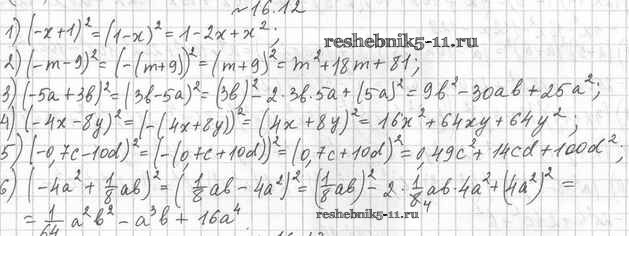 №16.12
1) (-x+1)² = (1-x)² = 1-2x+x²;
reshebnik5-11.ru
2) (-m-9)² = (-(m+9))² = (m+9)² = m²+18m+81;
3) (-5a+3b)² = (3b-5a)² = (3b)²-2·3b·5a+(5a)² = 9b²-30ab+25a²;
4) (-4x-8y)² = (-(4x+8y))² = (4x+8y)² = 16x²+64xy+64y²;
5) (-0,7c-10d)² = (-(0,7c+10d))² = (0,7c+10d)² = 0,49c²+14cd+100d²;
6) (-4a²+1/8ab)² = (1/8ab-4a²)² = (1/8ab)²-2·1/8₄ab·4a²+(4a²)² =
= 1/64 a²b²-a³b+16a⁴.
reshebnik5-11.ru